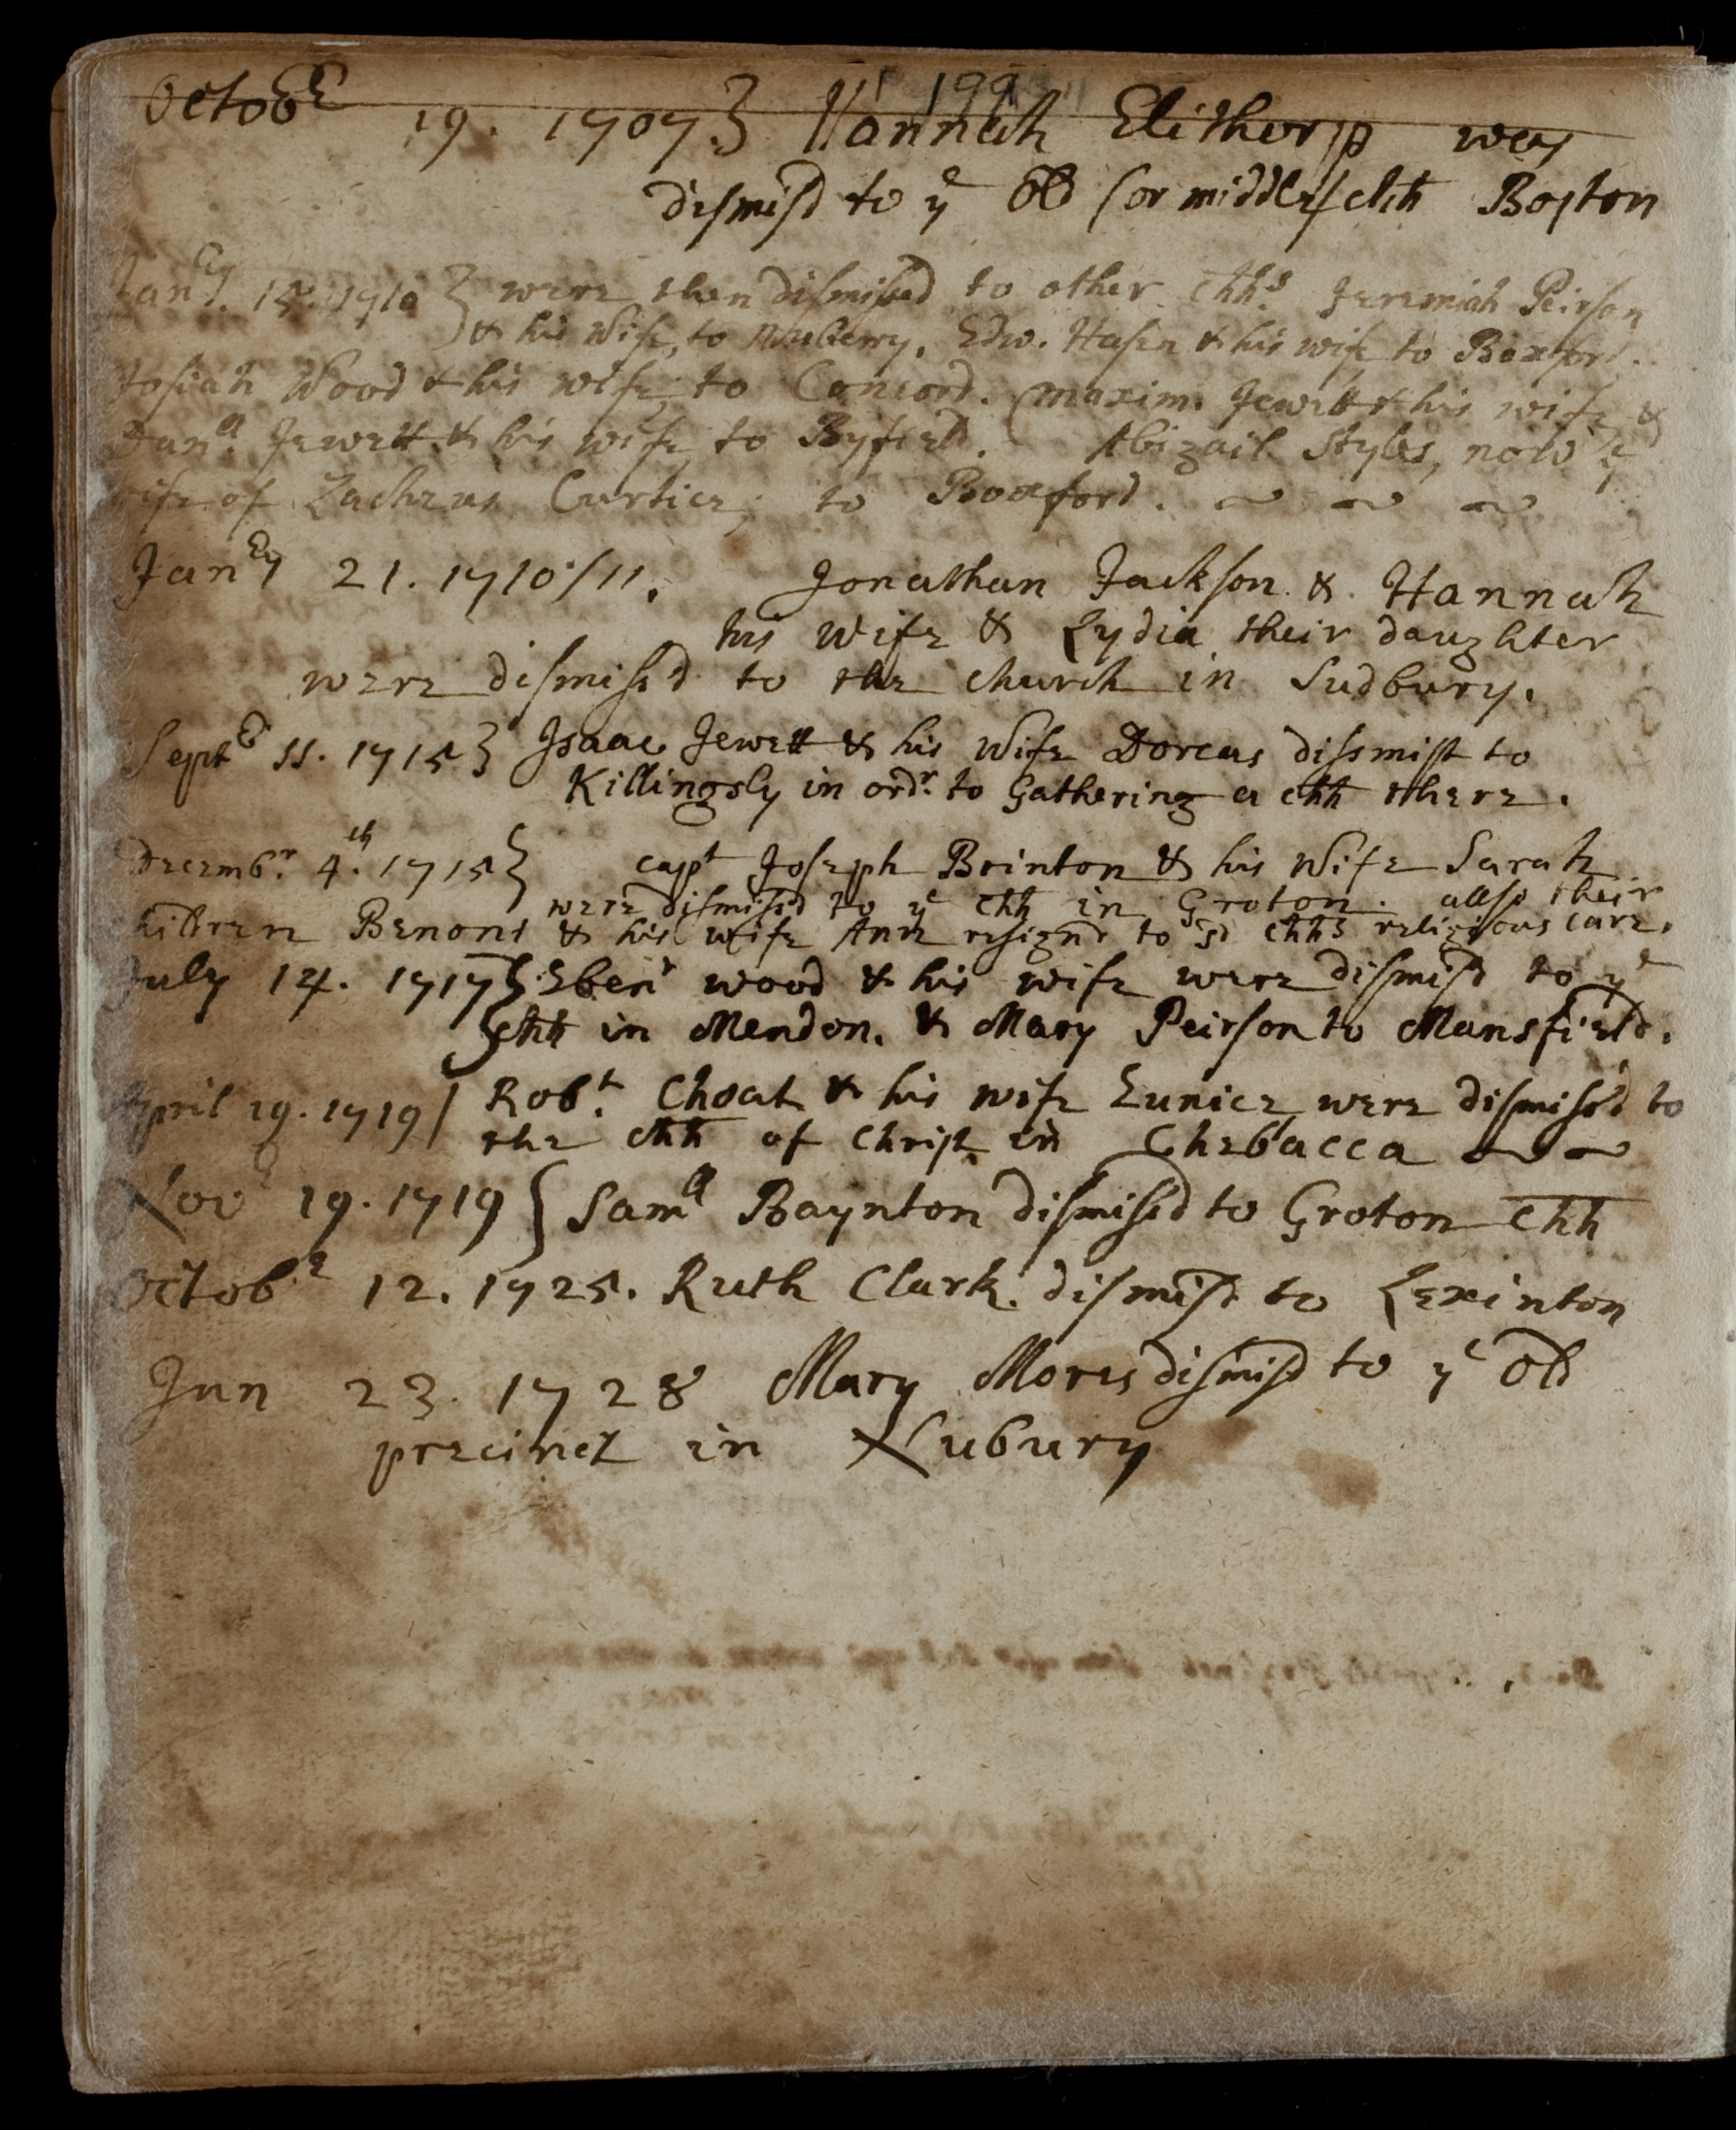 199
Octobr 19. 1707} Hannah Elithorp was
dismisd to ye old (or middle) chh Boston
Janry. 15. 1710 } were then dismissed to other chhs. Jeremiah Peirson
& his Wife, to Nuberry. Edw. Hasen & his wife to Boxford.
Josiah Wood & his wife to Concord. Maxim. Jewett & his wife &
Danll. Jewett & his wife to Byfield. Abigail Styles, now ye
wife of Zacheus Curtice; to Boxford.
Janry 21. 1710/11. Jonathan Jackson & Hannah
his Wife & Lydia their daughter
were dismiss'd to the church in Sudbury.
Septbr 11. 1715} Isaac Jewett & his Wife Dorcas dissmist to
Killingsly in ordr. to Gathering a chh there.
Decembr. 4th. 1715} capt Joseph Bointon & his Wife Sarah
were dismissd to ye chh in Groton. allso their
children Benoni & his wife Ann resignd to sd chhs religious care.
July 14. 1717} Ebenr wood & his wife were dismisd to ye
chh in Mendon. & Mary Peirson to Mansfield.
April 19. 1719/ Robt. Choat & his wife Eunice were dismiss'd to
the chh of Christ in Chebacca
Novr 19. 1719 { Samll Baynton dismissd to Groton chh
Octobr 12. 1725. Ruth Clark. dismist to Lexinton
Jun 23. 1728 Mary Mores dismisd to ye old
precinct in Nubury